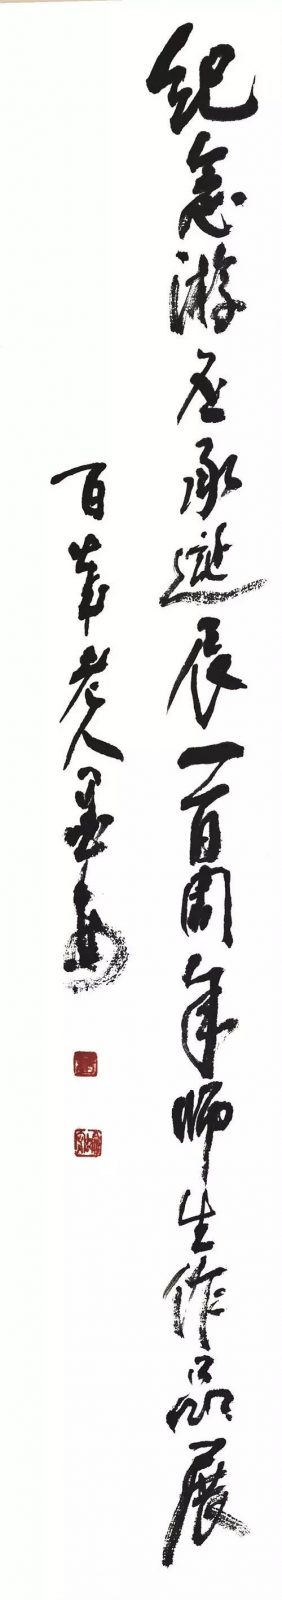 纪念游丕承诞辰一百周年师生作品展
百岁老人